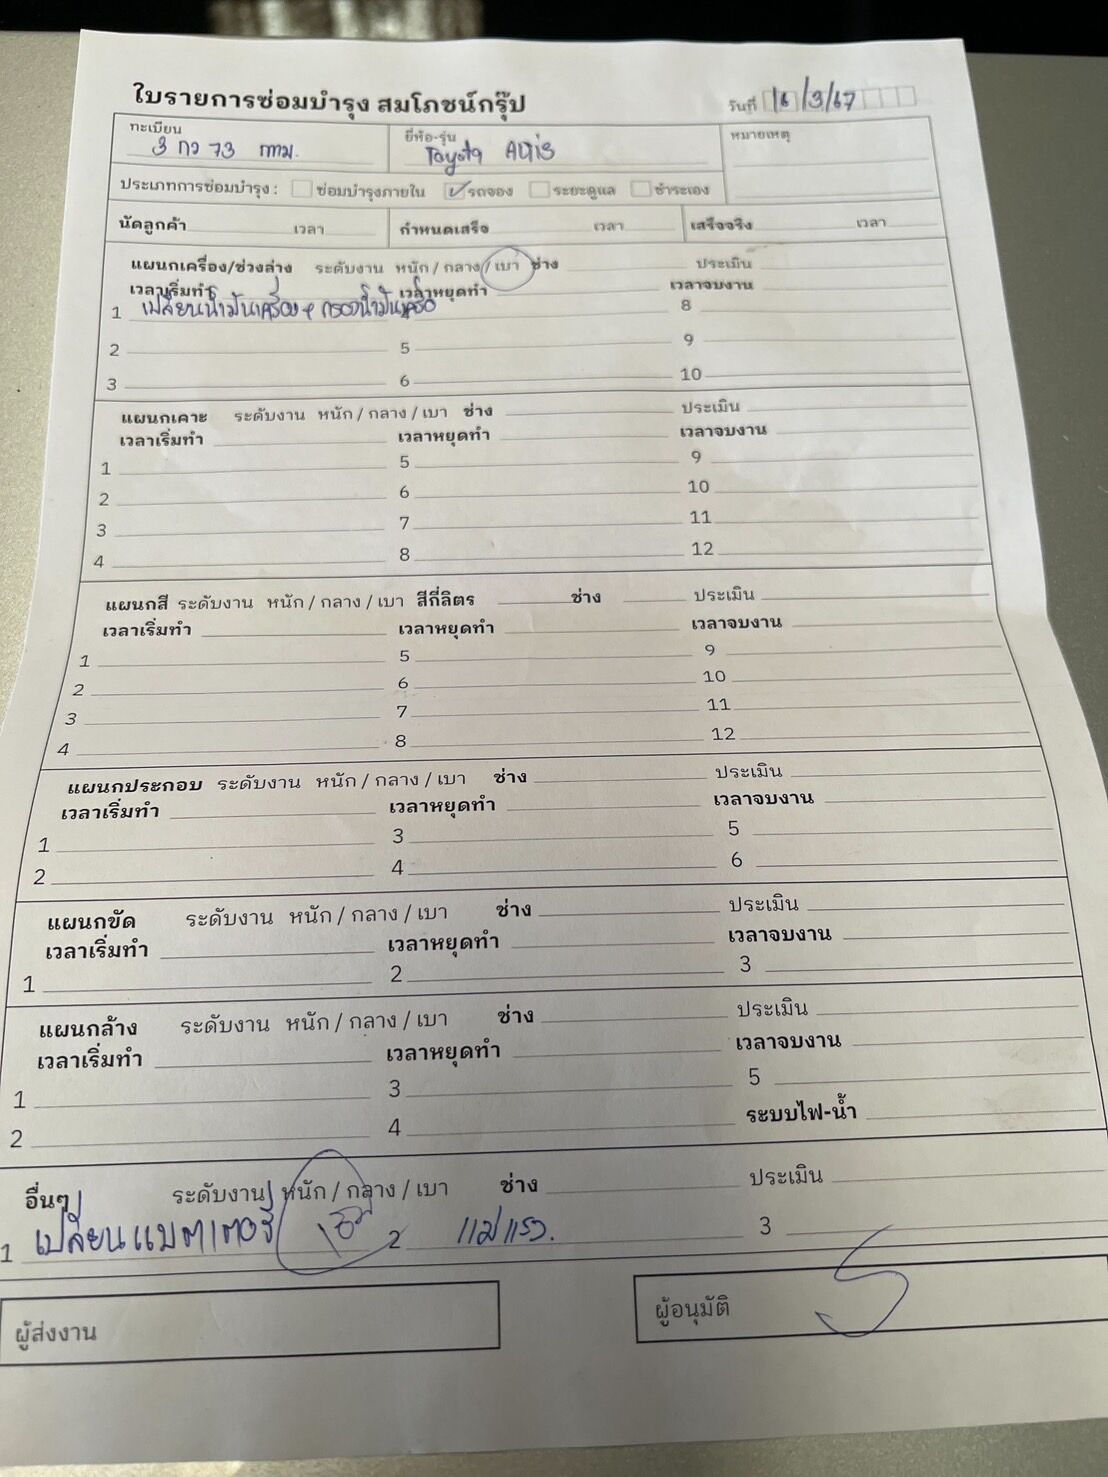 ใบรายการซ่อมบำรุง สมโภชน์กรุ๊ป
วันที่ 16/3/67
ทะเบียน ยี่ห้อ-รุ่น หมายเหตุ
3 กว 73 กทม. Toyota Altis
ประเภทการซ่อมบำรุง : ซ่อมบำรุงภายใน รถจอง ระยะดูแล ชำระเอง
นัดลูกค้า เวลา กำหนดเสร็จ เวลา เสร็จจริง เวลา
แผนกเครื่อง/ช่วงล่าง ระดับงาน หนัก / กลาง / เบา ช่าง ประเมิน
เวลาเริ่มทำ เวลาหยุดทำ เวลาจบงาน
1 เปลี่ยนน้ำมันเครื่อง + กรองน้ำมันเครื่อง 8
2 5 9
3 6 10
แผนกเคาะ ระดับงาน หนัก / กลาง / เบา ช่าง ประเมิน
เวลาเริ่มทำ เวลาหยุดทำ เวลาจบงาน
1 5 9
2 6 10
3 7 11
4 8 12
แผนกสี ระดับงาน หนัก / กลาง / เบา สีกี่ลิตร ช่าง ประเมิน
เวลาเริ่มทำ เวลาหยุดทำ เวลาจบงาน
1 5 9
2 6 10
3 7 11
4 8 12
แผนกประกอบ ระดับงาน หนัก / กลาง / เบา ช่าง ประเมิน
เวลาเริ่มทำ เวลาหยุดทำ เวลาจบงาน
1 3 5
2 4 6
แผนกขัด ระดับงาน หนัก / กลาง / เบา ช่าง ประเมิน
เวลาเริ่มทำ เวลาหยุดทำ เวลาจบงาน
1 2 3
แผนกล้าง ระดับงาน หนัก / กลาง / เบา ช่าง ประเมิน
เวลาเริ่มทำ เวลาหยุดทำ เวลาจบงาน
1 3 5
2 4 ระบบไฟ-น้ำ
อื่นๆ ระดับงาน หนัก / กลาง / เบา ช่าง ประเมิน
1 เปลี่ยนแบตเตอรี่ 2 แม่แรง. 3
ผู้ส่งงาน ผู้อนุมัติ